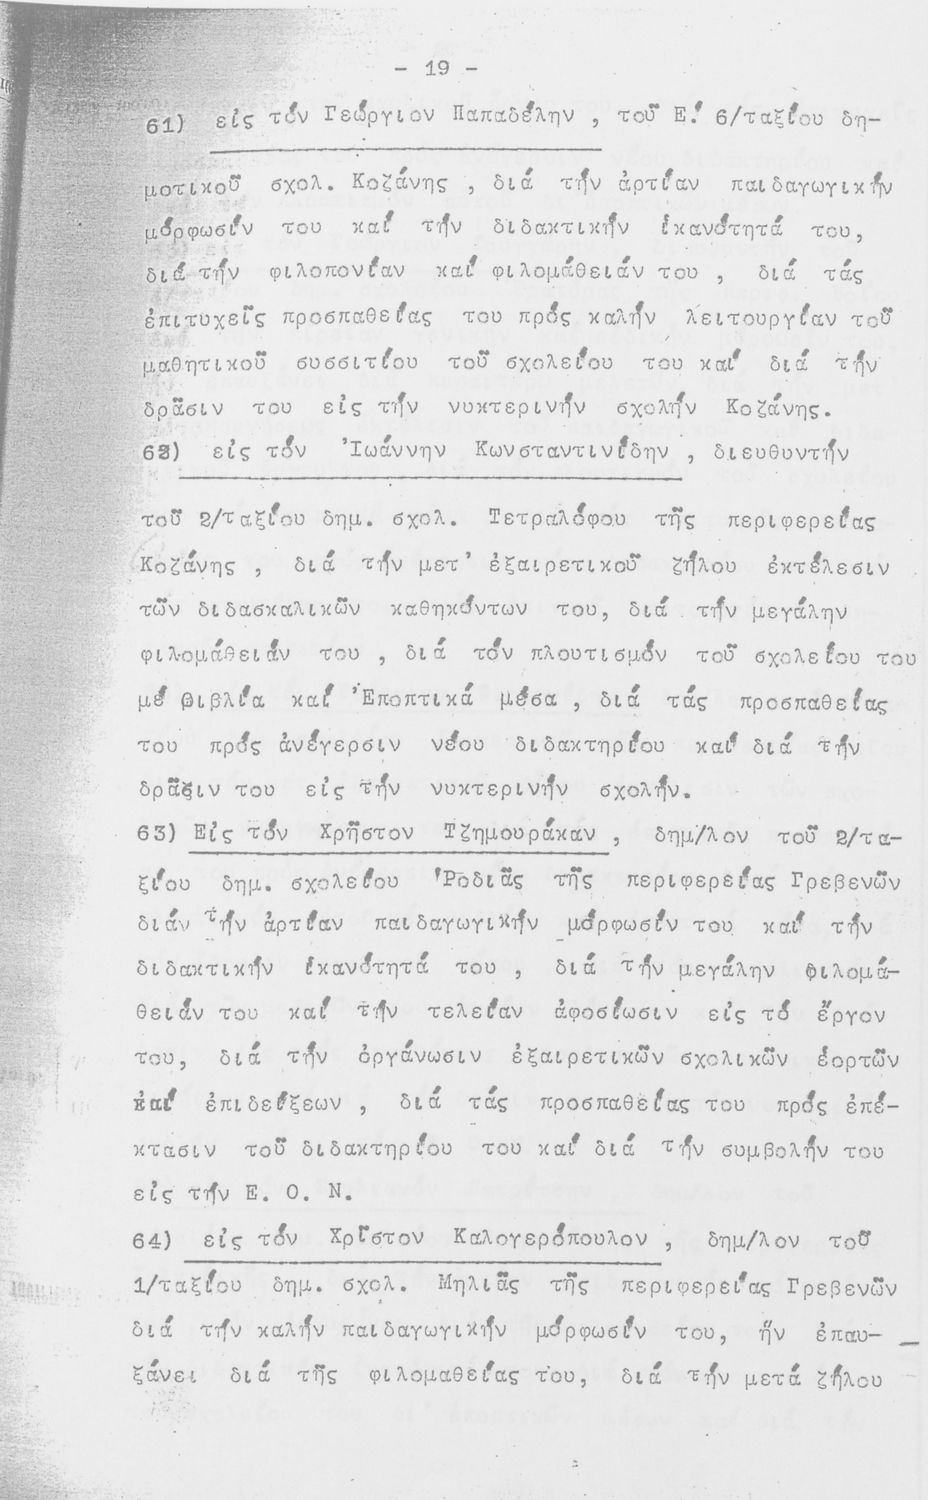 - 19 -
61) εἰς τόν Γεώργιον Παπαδέλην , τοῦ Ε! 6/ταξίου δη-
μοτικοῦ σχολ. Κοζάνης , διά τήν ἀρτίαν παιδαγωγικήν
μόρφωσίν του καί τήν διδακτικήν ἱκανότητά του,
διά τήν φιλοπονίαν καί φιλομάθειάν του , διά τάς
ἐπιτυχεῖς προσπαθείας του πρός καλήν λειτουργίαν τοῦ
μαθητικοῦ συσσιτίου τοῦ σχολείου του καί διά τήν
δρᾶσιν του εἰς τήν νυκτερινήν σχολήν Κοζάνης.
62) εἰς τόν Ἰωάννην Κωνσταντινίδην , διευθυντήν
τοῦ 2/ταξίου δημ. σχολ. Τετραλόφου τῆς περιφερείας
Κοζάνης , διά τήν μετ' ἐξαιρετικοῦ ζήλου ἐκτέλεσιν
τῶν διδασκαλικῶν καθηκόντων του, διά τήν μεγάλην
φιλομάθειάν του , διά τόν πλουτισμόν τοῦ σχολείου του
μέ βιβλία καί Ἐποπτικά μέσα , διά τάς προσπαθείας
του πρός ἀνέγερσιν νέου διδακτηρίου καί διά τήν
δρᾶσιν του εἰς τήν νυκτερινήν σχολήν.
63) Εἰς τόν Χρῆστον Τζημουράκαν , δημ/λον τοῦ 2/τα-
ξίου δημ. σχολείου Ῥοδιᾶς τῆς περιφερείας Γρεβενῶν
διάν τήν ἀρτίαν παιδαγωγικήν μόρφωσίν του καί τήν
διδακτικήν ἱκανότητά του , διά τήν μεγάλην φιλομά-
θειάν του καί τήν τελείαν ἀφοσίωσιν εἰς τό ἔργον
του, διά τήν ὀργάνωσιν ἐξαιρετικῶν σχολικῶν ἑορτῶν
καί ἐπιδείξεων , διά τάς προσπαθείας του πρός ἐπέ-
κτασιν τοῦ διδακτηρίου του καί διά τήν συμβολήν του
εἰς τήν Ε. Ο. Ν.
64) εἰς τόν Χρῖστον Καλογερόπουλον , δημ/λον τοῦ
1/ταξίου δημ. σχολ. Μηλιᾶς τῆς περιφερείας Γρεβενῶν
διά τήν καλήν παιδαγωγικήν μόρφωσίν του, ἥν ἐπαυ-
ξάνει διά τῆς φιλομαθείας του, διά τήν μετά ζήλου